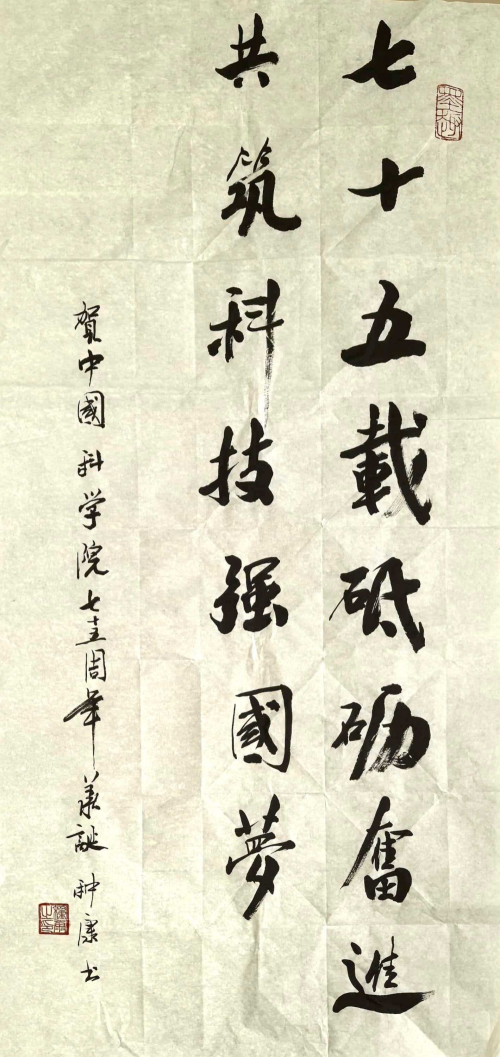 七十五載砥砺奮進
共筑科技强國夢
賀中國科学院七十五周年华誕 种康书